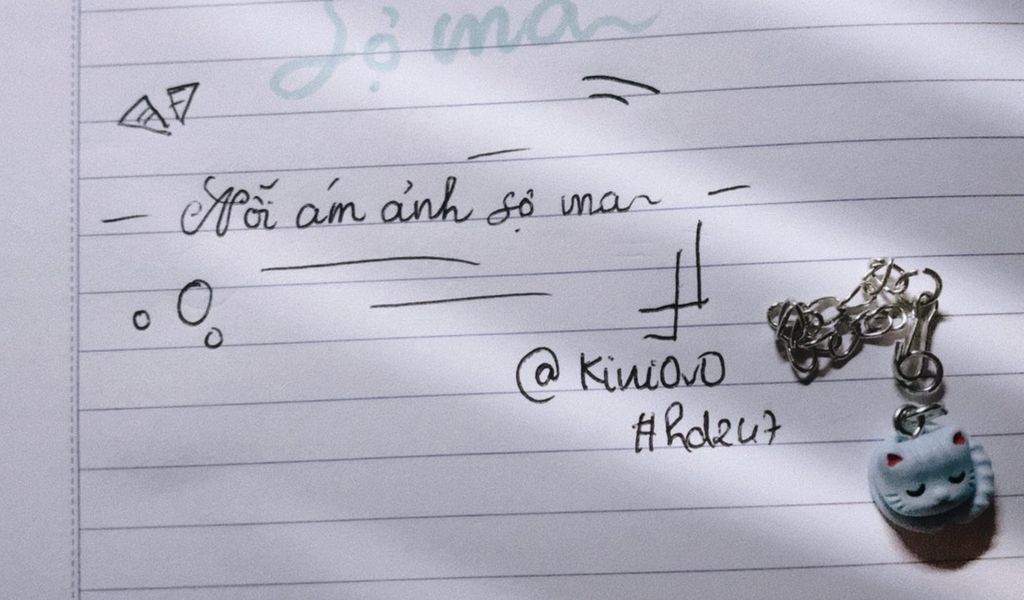 Sợ ma
- Nỗi ám ảnh sợ ma -
@KiwiOvO
#hd247